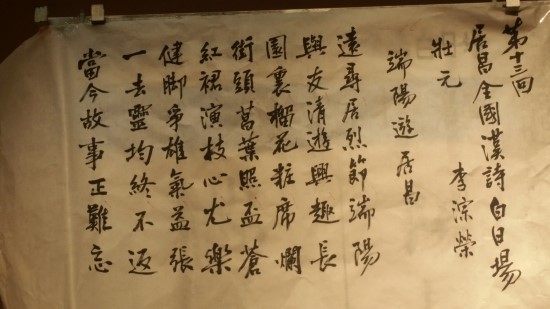 第十三回
居昌全國漢詩白日場
壯元
李淙榮
端陽遊居昌
遠尋居烈節端陽
與友清遊興趣長
園裏榴花粧席爛
街頭菖葉照盃蒼
紅裙演技心尤樂
健脚爭雄氣益張
一去靈均終不返
當今故事正難忘